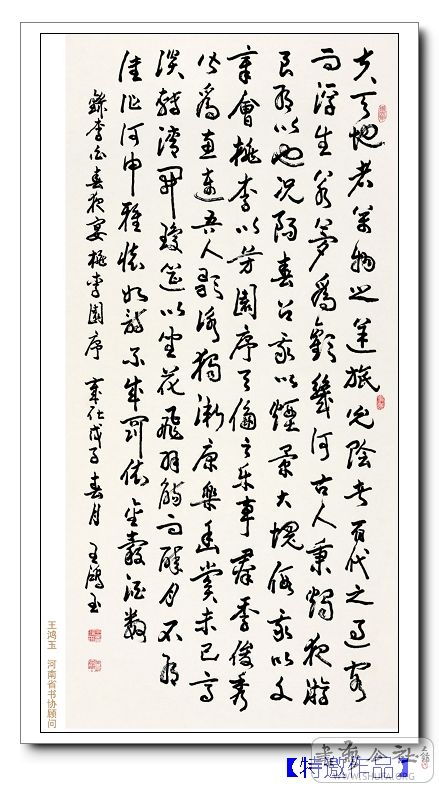 夫天地者萬物之逆旅光陰者百代之過客
而浮生若夢爲歡幾何古人秉燭夜游
良有以也況陽春召我以煙景大塊假我以文
章會桃李之芳園序天倫之樂事群季俊秀
皆爲惠連吾人歌詠獨慚康樂幽賞未已高
談轉清開瓊筵以坐花飛羽觴而醉月不有
佳作何申雅懷如詩不成罰依金穀酒數
錄李白春夜宴桃李園序 歲在戊子春月 王鴻玉
王鸿玉 河南省书协顾问
【特邀作品】
书法公社
WWW.SHUFA.ORG